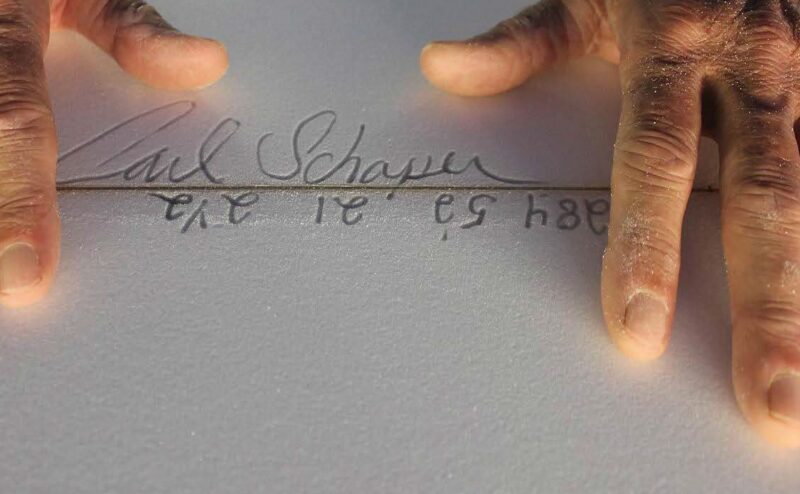 Carl Schaper
284 5'2 21 2 1/2